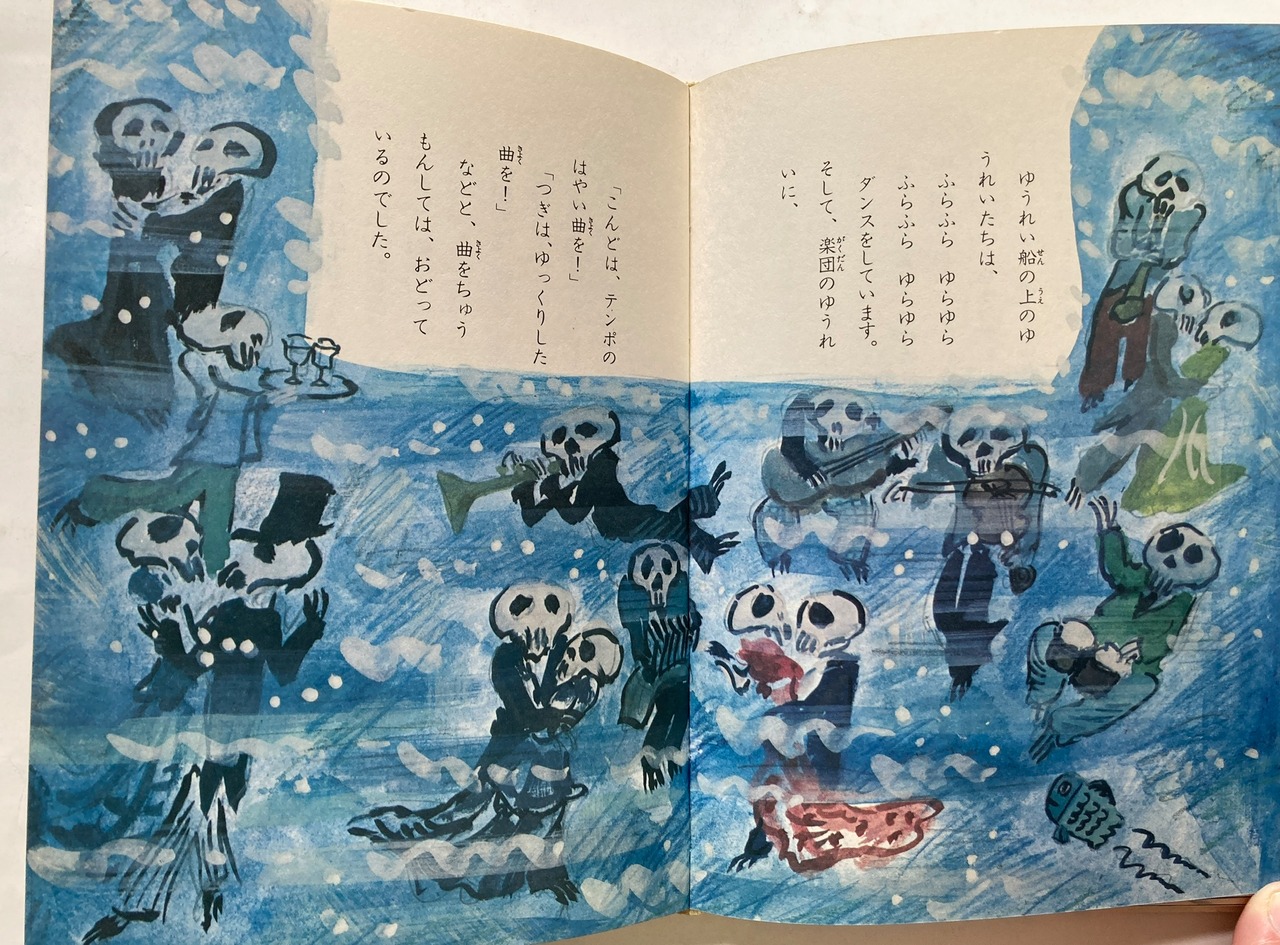 ゆうれい船の上のゆ
うれいたちは、
ふらふら　ゆらゆら
ふらふら　ゆらゆら
ダンスをしています。
そして、楽団のゆうれ
いに、
「こんどは、テンポの
はやい曲を！」
「つぎは、ゆっくりした
曲を！」
などと、曲をちゅう
もんしては、おどって
いるのでした。